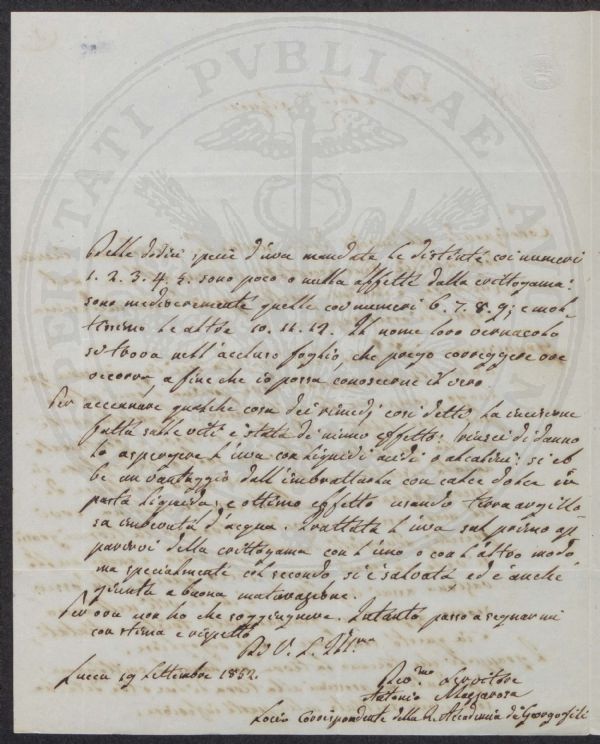 PROSPERITATI PUBLICAE AUG
Delle dodici specie d'uva mandate le distinte coi numeri
1. 2. 3. 4. 5. sono poco o nulla affette dalla crittogama:
sono mediocremente quelle coi numeri 6. 7. 8. 9; e mol-
tissimo le altre 10. 11. 12. Il nome loro vernacolo
si trova nell'accluso foglio, che prego correggere ove
occorra, a fine che io possa conoscerne il vero.
Per accennare qualche cosa dei rimedj così detti, la incisione
fatta sulle viti è stata di niuno effetto: riuscì di danno
lo aspergere l'uva con liquidi acidi o alcalini: si eb-
be un vantaggio dall'imbrattarla con calce dolce in
pasta liquida; e ottimo effetto usando terra argillo-
sa imbevuta d'acqua. Trattata l'uva sul primo ap-
parirvi della crittogama con l'uno o con l'altro modo,
ma specialmente col secondo, si è salvata ed è anche
giunta a buona maturazione.
Per ora non ho che soggiungere. Intanto passo a segnarmi
con stima e rispetto
Di V. S. Ill.ma
Lucca 19 Settembre 1852.
Dev.mo Servitore
Antonio Mazzarosa
Socio Corrispondente della R. Accademia dei Georgofili